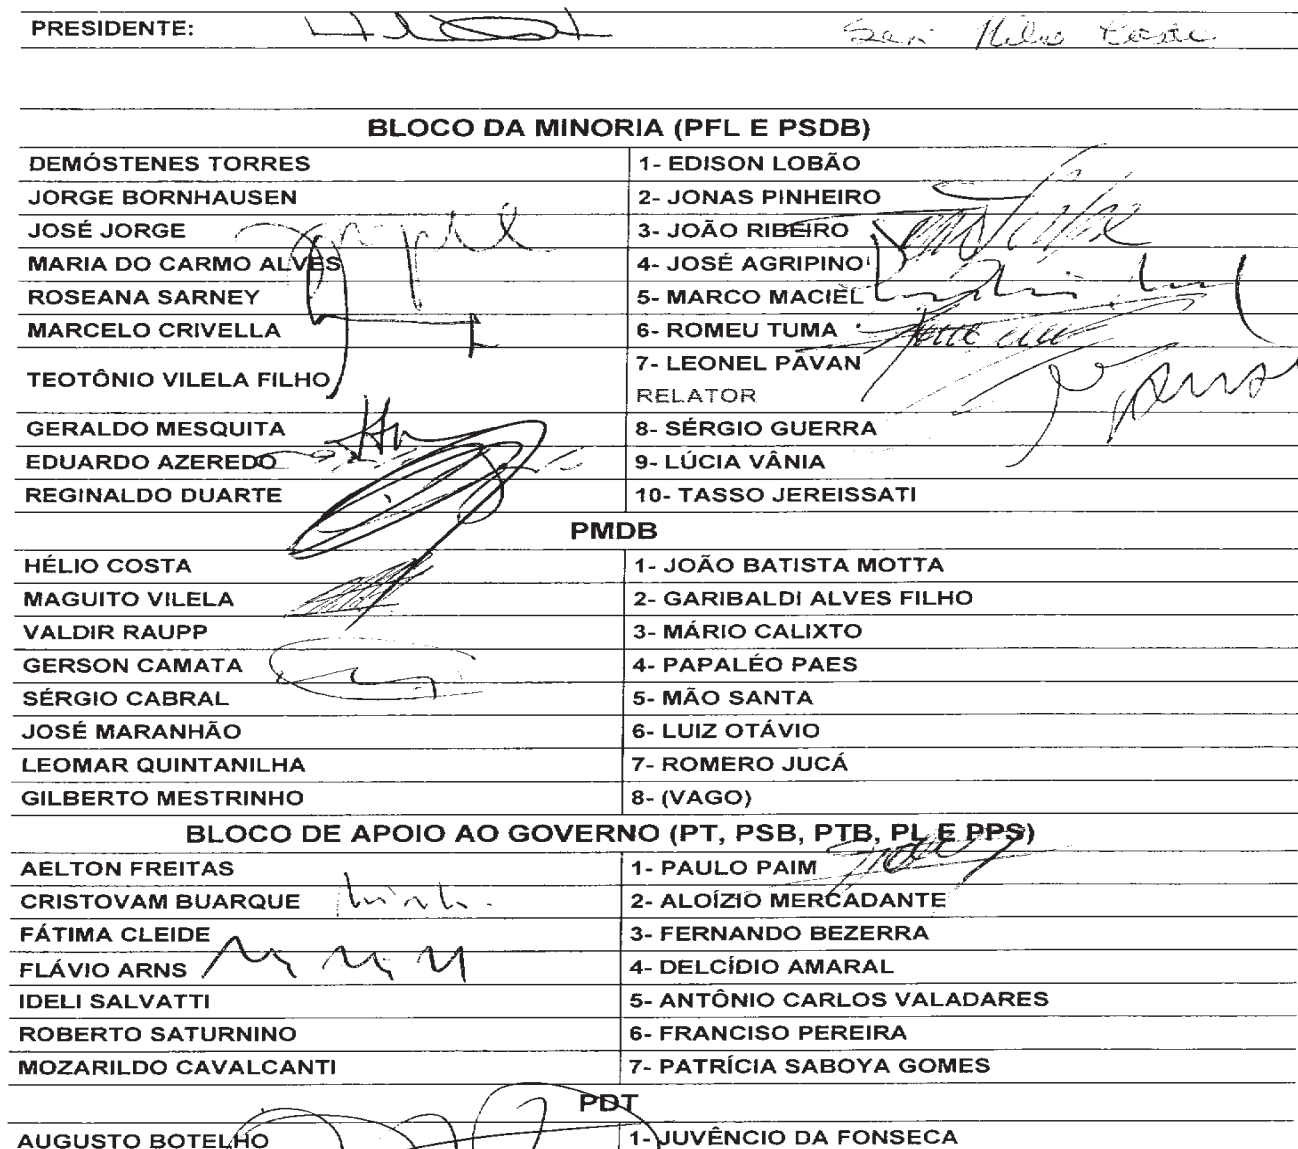 PRESIDENTE: Sen. Hélio Costa
BLOCO DA MINORIA (PFL E PSDB)
DEMÓSTENES TORRES 1- EDISON LOBÃO
JORGE BORNHAUSEN 2- JONAS PINHEIRO
JOSÉ JORGE 3- JOÃO RIBEIRO
MARIA DO CARMO ALVES 4- JOSÉ AGRIPINO
ROSEANA SARNEY 5- MARCO MACIEL
MARCELO CRIVELLA 6- ROMEU TUMA
TEOTÔNIO VILELA FILHO 7- LEONEL PAVAN
RELATOR
GERALDO MESQUITA 8- SÉRGIO GUERRA
EDUARDO AZEREDO 9- LÚCIA VÂNIA
REGINALDO DUARTE 10- TASSO JEREISSATI
PMDB
HÉLIO COSTA 1- JOÃO BATISTA MOTTA
MAGUITO VILELA 2- GARIBALDI ALVES FILHO
VALDIR RAUPP 3- MÁRIO CALIXTO
GERSON CAMATA 4- PAPALÉO PAES
SÉRGIO CABRAL 5- MÃO SANTA
JOSÉ MARANHÃO 6- LUIZ OTÁVIO
LEOMAR QUINTANILHA 7- ROMERO JUCÁ
GILBERTO MESTRINHO 8- (VAGO)
BLOCO DE APOIO AO GOVERNO (PT, PSB, PTB, PL E PPS)
AELTON FREITAS 1- PAULO PAIM
CRISTOVAM BUARQUE 2- ALOÍZIO MERCADANTE
FÁTIMA CLEIDE 3- FERNANDO BEZERRA
FLÁVIO ARNS 4- DELCÍDIO AMARAL
IDELI SALVATTI 5- ANTÔNIO CARLOS VALADARES
ROBERTO SATURNINO 6- FRANCISO PEREIRA
MOZARILDO CAVALCANTI 7- PATRÍCIA SABOYA GOMES
PDT
AUGUSTO BOTELHO 1- JUVÊNCIO DA FONSECA